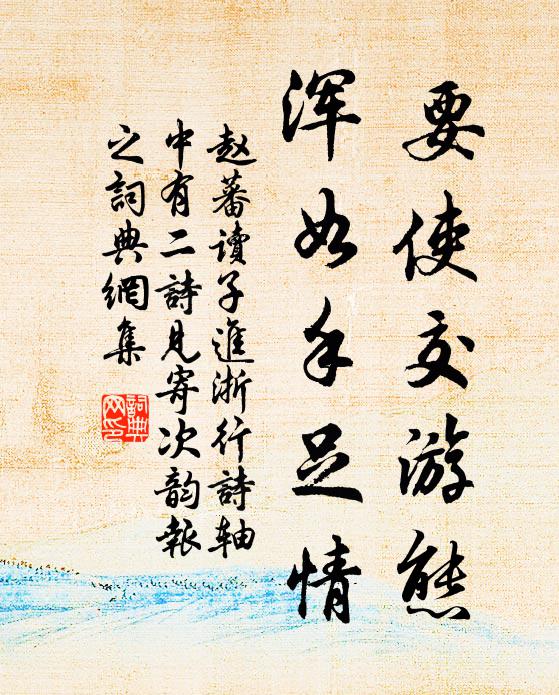 要使交游態
渾如手足情
赵蕃讀子進浙行詩轴
中有二詩見寄次韵報
之詞典網集
詞典
网印